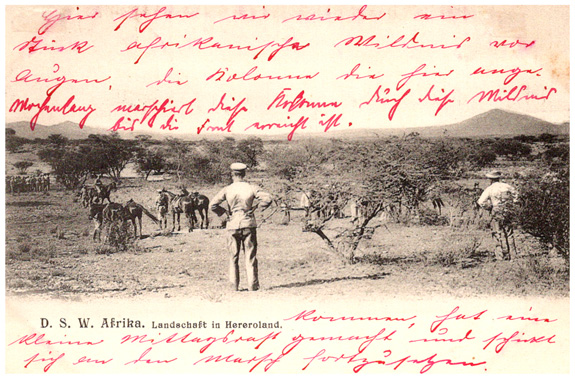 Hier sehen wir wieder ein
Stück afrikanische Wildnis vor
Augen, die Kolonne die hier ange-
Wochenlang marschiert diese Kolonne durch diese Wildnis
bis die Front erreicht ist.
D. S. W. Afrika. Landschaft in Hereroland.
kommen, hat eine
kleine Mittagsrast gemacht und schickt
sich an den Marsch fortzusetzen.